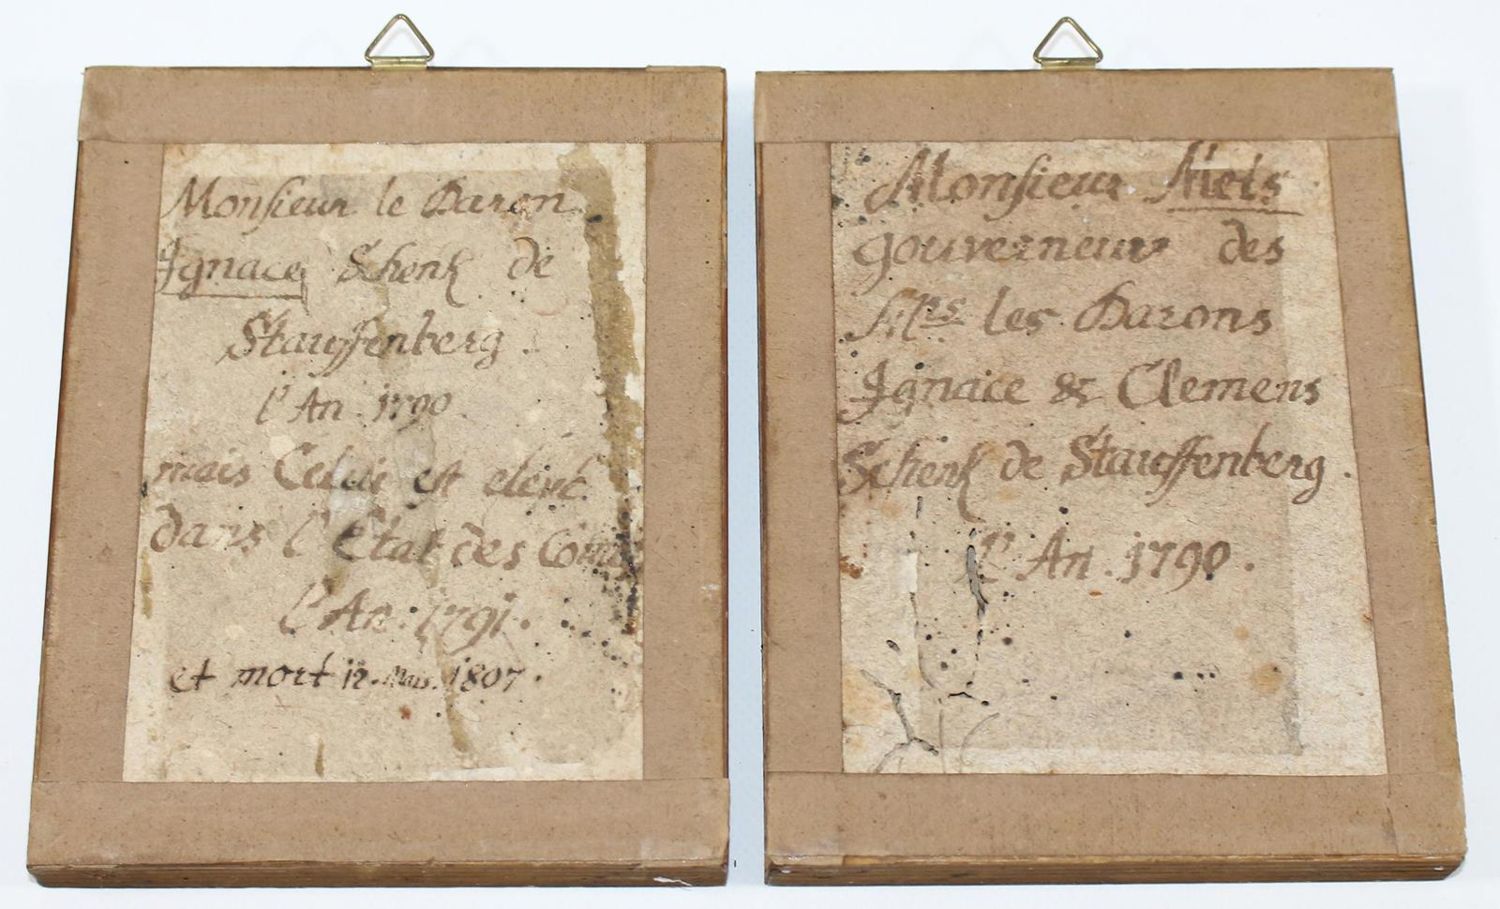 Monsieur le Baron
Ignace Schenk de
Stauffenberg.
l'An. 1790.
mais Celui est elevé
dans l'Etat des
l'An. 1791.
et mort 12. Mars. 1807.
Monsieur Mets
gouverneur des
Mrs les Barons
Ignace & Clemens
Schenk de Stauffenberg.
l'An. 1790.